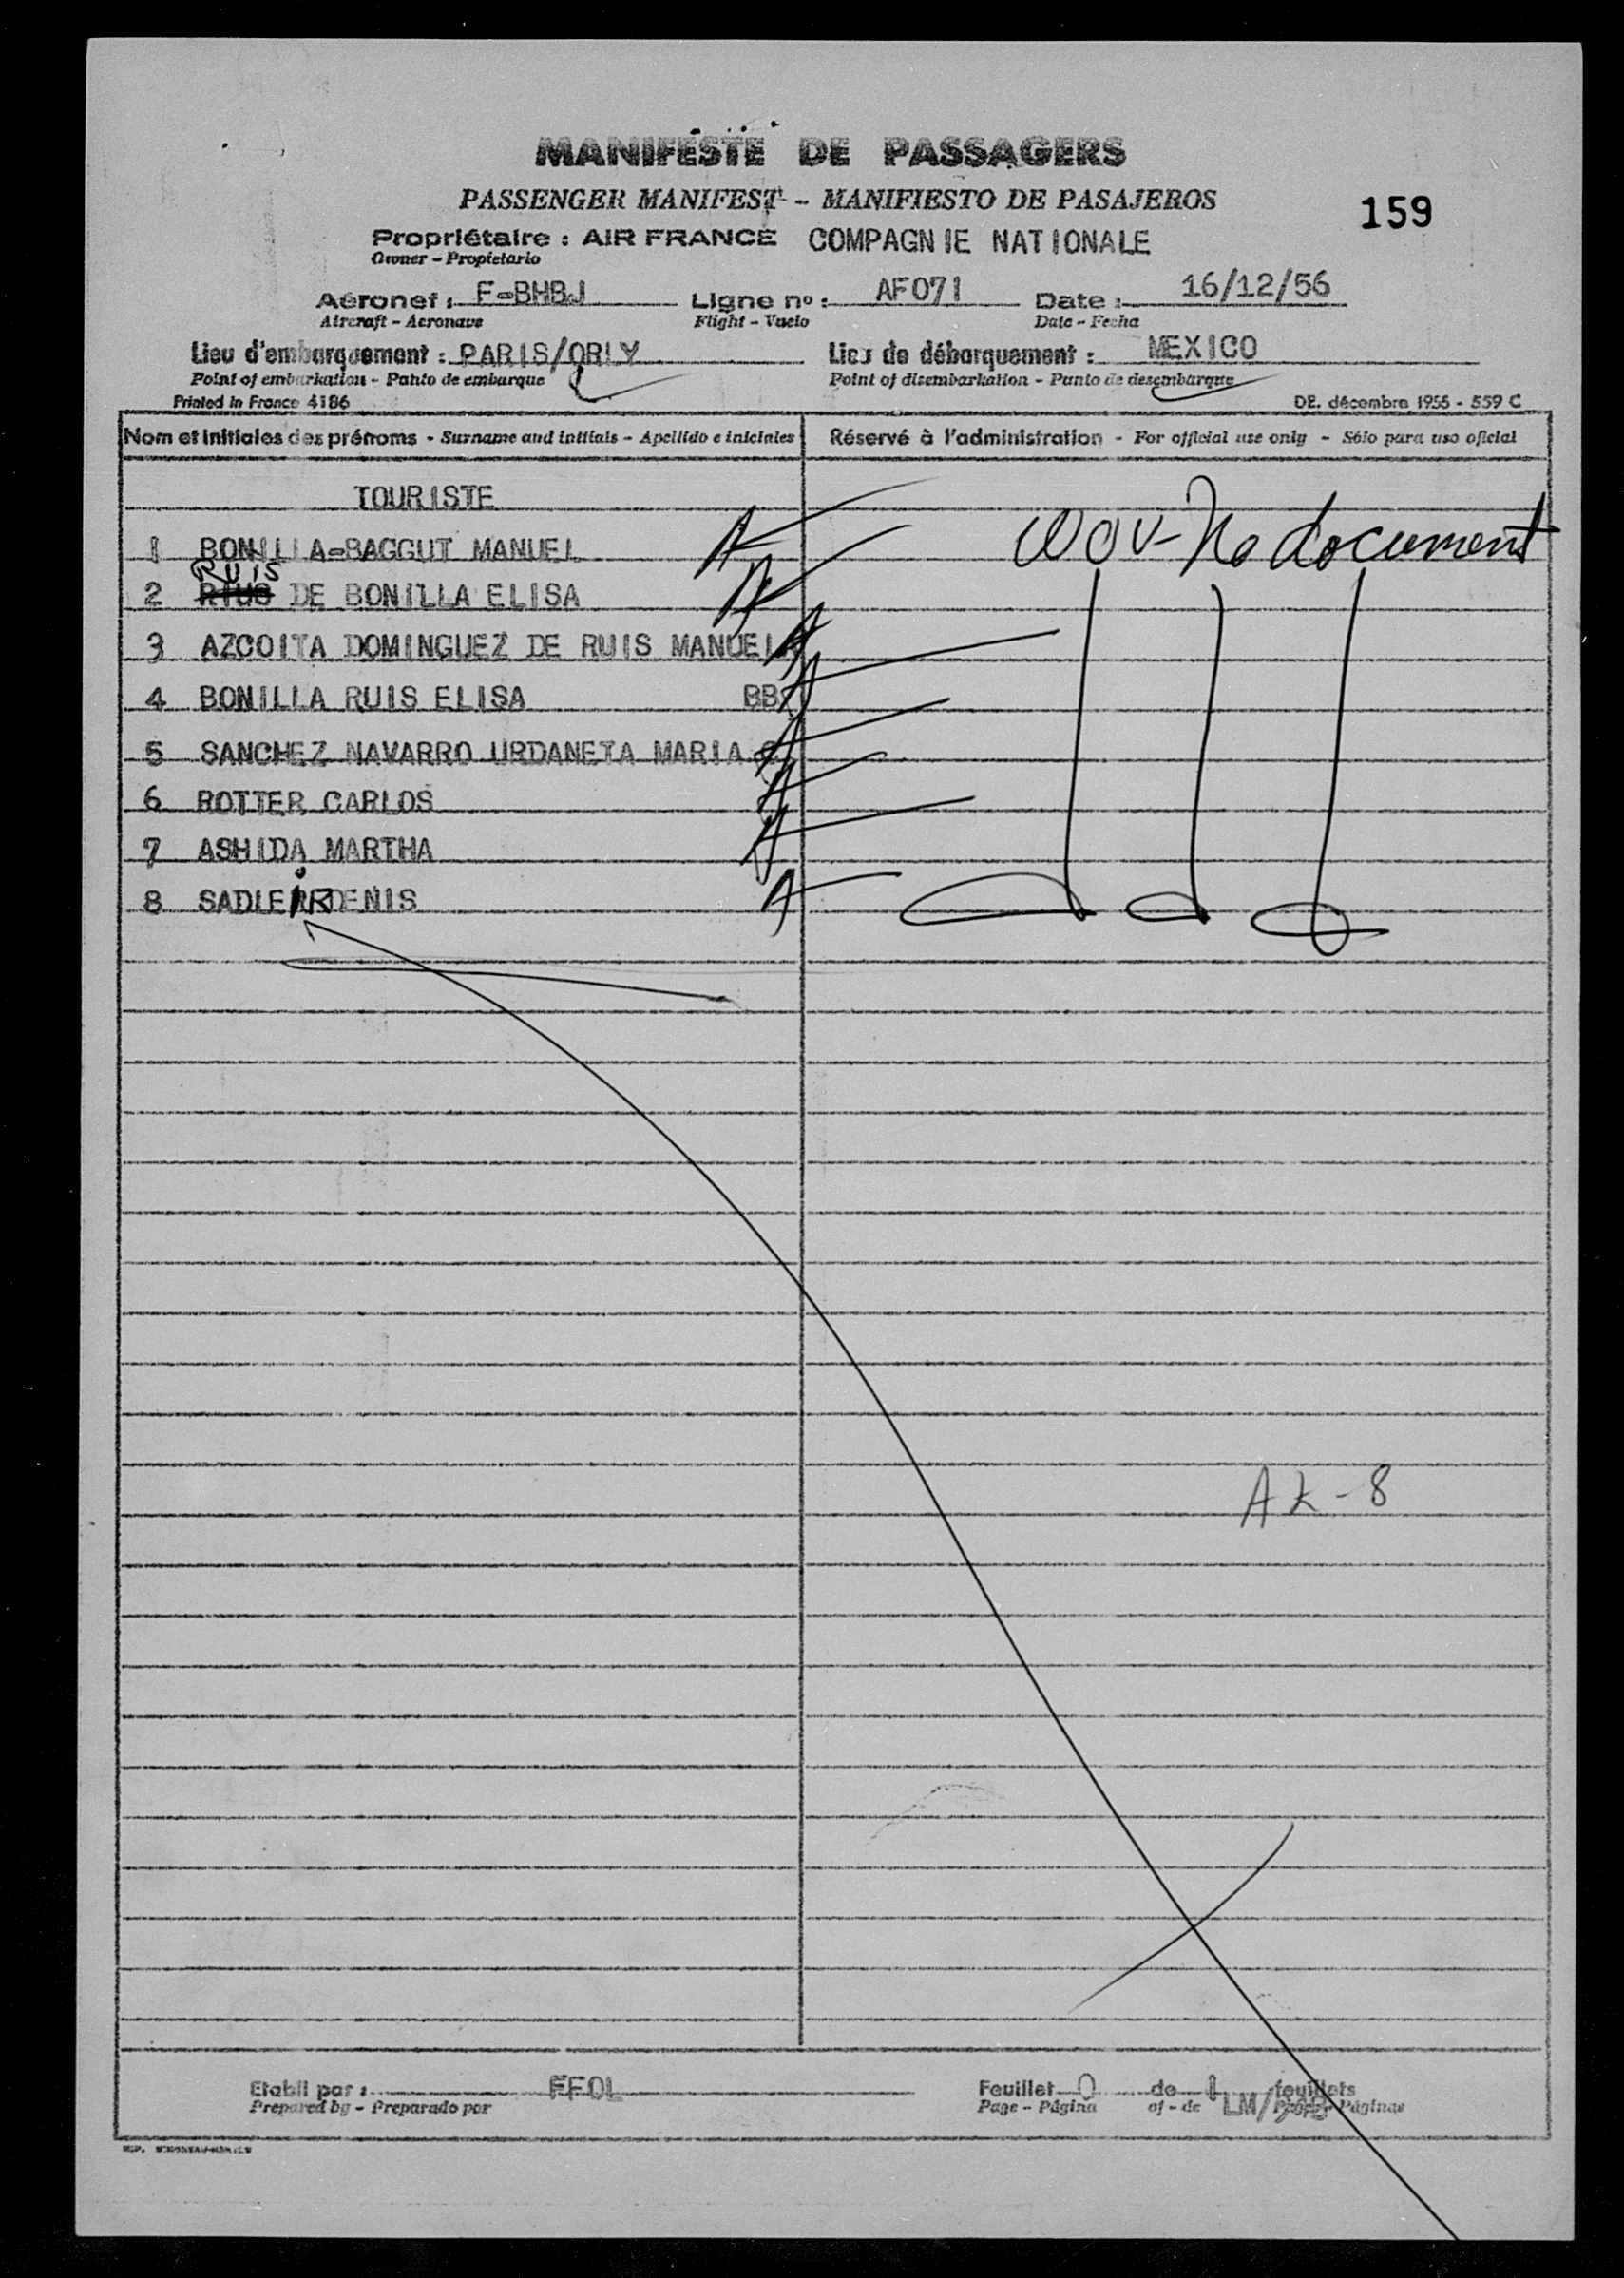 MANIFESTE DE PASSAGERS
PASSENGER MANIFEST - MANIFIESTO DE PASAJEROS
159
Propriétaire : AIR FRANCE COMPAGNIE NATIONALE
Owner - Propietario
Aéronef : F-BHBJ Ligne no : AF071 Date : 16/12/56
Aircraft - Aeronave Flight - Vuelo Date - Fecha
Lieu d'embarquement : PARIS/ORLY Lieu de débarquement : MEXICO
Point of embarkation - Punto de embarque Point of disembarkation - Punto de desembarque
Printed in France 4186 DE. décembre 1955 - 559 C
Nom et initiales des prénoms - Surname and initials - Apellido e iniciales Réservé à l'administration - For official use only - Sólo para uso oficial
TOURISTE
1 BONILLA-BAGGUT MANUEL WOV-No document
RUIS
2 RIUS DE BONILLA ELISA
3 AZCOITA DOMINGUEZ DE RUIS MANUELA
4 BONILLA RUIS ELISA BB
5 SANCHEZ NAVARRO URDANETA MARIA
6 ROTTER CARLOS
7 ASHIDA MARTHA
8 SADLEIR DENIS
AK-8
Etabli par : FFOL Feuillet 0 de 1 feuillets
Prepared by - Preparado por Page - Página of - de LM/ Páginas